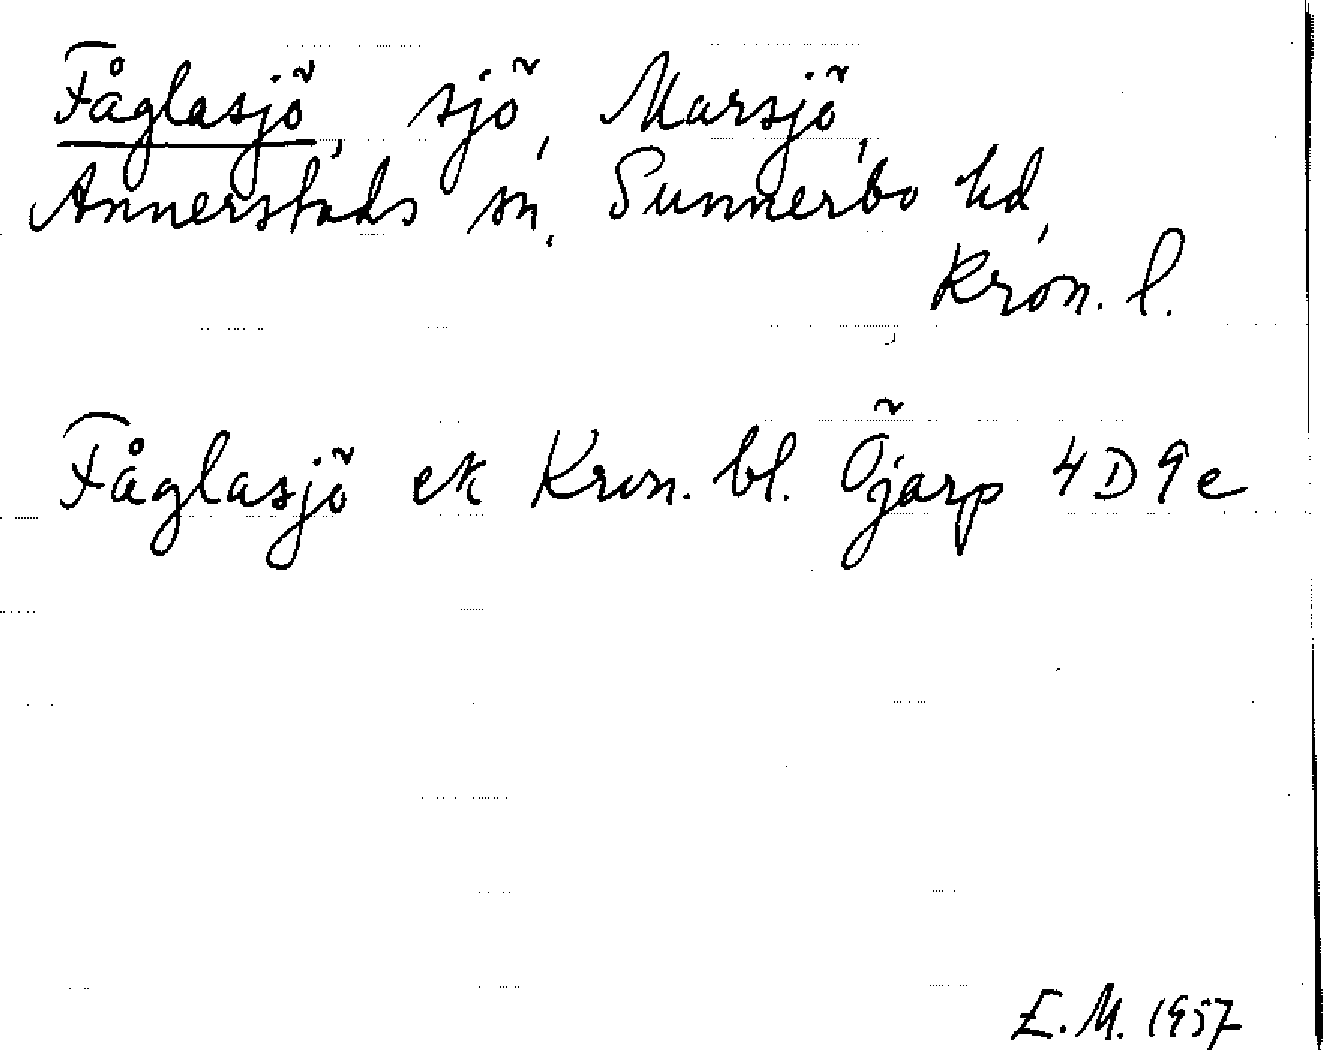 Fåglasjö, sjö, Marsjö,
Annerstads sn, Sunnerbo hd,
Kron. l.
Fåglasjö ek Kron. bl. Öjarp 4D9e
E.M. 1957